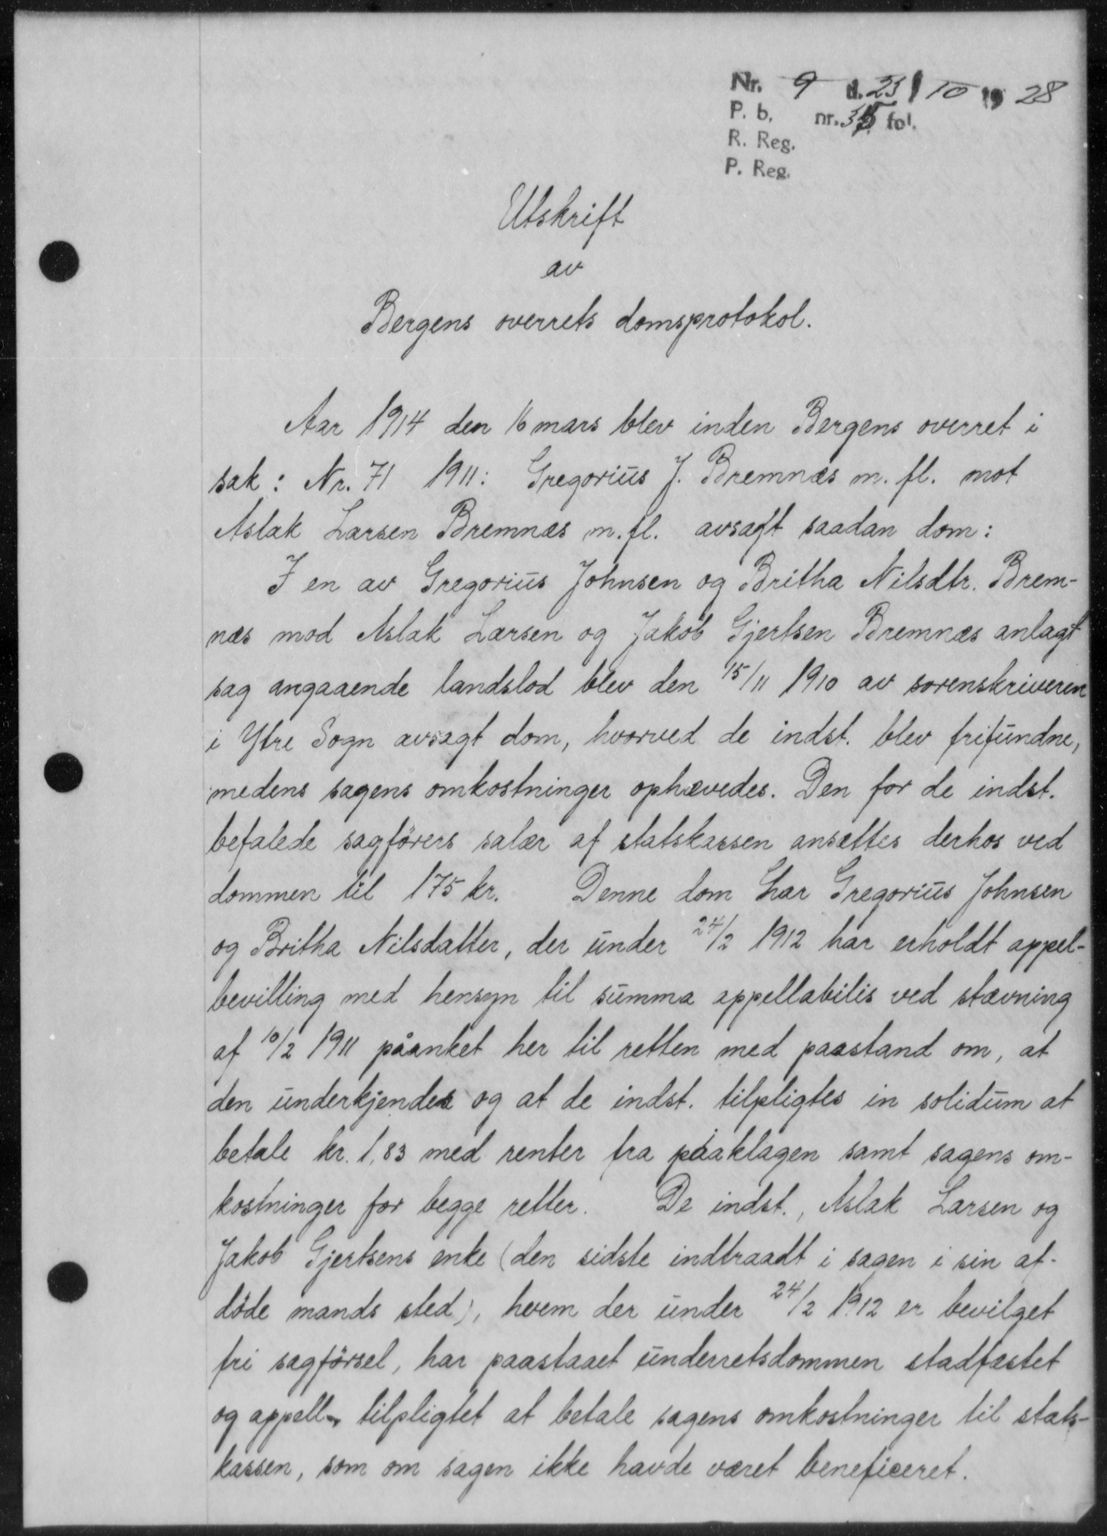 Nr. 9 d. 23/10 19 28
P. b. nr. 35 fol.
R. Reg.
P. Reg.
Utskrift
av
Bergens overrets domsprotokol.
Aar 1914 den 16 mars blev inden Bergens overret i
sak: Nr. 71 1911: Gregorius J. Bremnæs m. fl. mot
Aslak Larsen Bremnæs m. fl. avsagt saadan dom:
I en av Gregorius Johnsen og Britha Nilsdtr. Brem-
næs mod Aslak Larsen og Jakob Gjertsen Bremnæs anlagt
sag angaaende landslod blev den 15/11 1910 av sorenskriveren
i Ytre Sogn avsagt dom, hvorved de indst. blev frifundne,
medens sagens omkostninger ophævedes. Den for de indst.
befalede sagførers salær af statskassen ansettes derhos ved
dommen til 175 kr. Denne dom har Gregorius Johnsen
og Britha Nilsdatter, der under 24/2 1912 har erholdt appel-
bevilling med hensyn til summa appellabilis ved stævning
af 10/2 1911 påanket her til retten med paastand om, at
den underkjendes og at de indst. tilpligtes in solidum at
betale kr. 1,83 med renter fra påaklagen samt sagens om-
kostninger for begge retter. De indst., Aslak Larsen og
Jakob Gjertsens enke (den sidste indtraadt i sagen i sin af-
døde mands sted), hvem der under 24/2 1912 er bevilget
fri sagførsel, har paastaaet underretsdommen stadfæstet
og appell. tilpligtet at betale sagens omkostninger til stats-
kassen, som om sagen ikke havde været beneficeret.